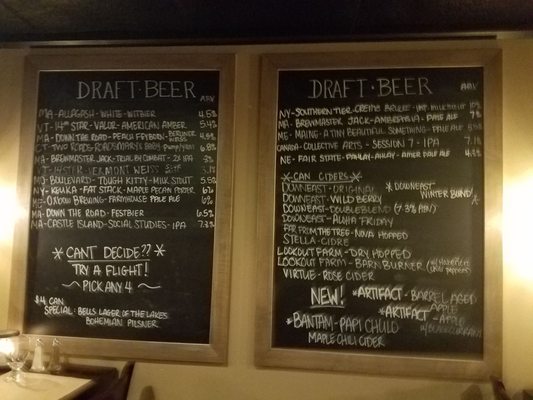 DRAFT · BEER ABV
MA - ALLAGASH - WHITE - WITBIER 4.5%
VT - 14TH STAR - VALOR - AMERICAN AMBER 5.4%
MA - DOWN THE ROAD - PEACH BERLINER WEISS 4.5%
CT - TWO ROADS - ROADSMARY'S BABY
MA - BREWMASTER JACK - TRIAL BY COMBAT - 2X IPA
VERMONT WEISS
MO - BOULEVARD - TOUGH KITTY - MILK STOUT
NY - KEUKA - FAT STACK - MAPLE PECAN PORTER 6%
OXBOW BREWING - FARMHOUSE PALE ALE 6%
MA - DOWN THE ROAD - FESTBIER 6.5%
MA - CASTLE ISLAND - SOCIAL STUDIES - IPA
* CANT DECIDE?? *
TRY A FLIGHT!
~ PICK ANY 4 ~
$4 CAN
SPECIAL: BELLS LAGER OF THE LAKES
BOHEMIAN PILSNER
DRAFT · BEER ABV
NY - SOUTHERN TIER - CREME BRULEE - IMP. MILK STOUT 10%
MA - BREWMASTER JACK - AMBERSIA - PALE ALE
ME - MAINE - A TINY BEAUTIFUL SOMETHING - PALE ALE
CANADA - COLLECTIVE ARTS - SESSION 7 - IPA 7.1%
NE - FAIR STATE - PAHLAY-AHLAY - PALE ALE
* CAN CIDERS *
DOWNEAST - ORIGINAL
DOWNEAST - WILD BERRY
DOWNEAST - DOUBLE BLEND (7.3% ABV)
DOWNEAST - ALOHA FRIDAY
* DOWNEAST
WINTER BLEND *
FAR FROM THE TREE - NOVA HOPPED
STELLA - CIDRE
LOOKOUT FARM - DRY HOPPED
LOOKOUT FARM - BARN BURNER (W/ HABANERO
CHILI PEPPERS)
VIRTUE - ROSE CIDER
NEW! * ARTIFACT - BARREL AGED
APPLE
* ARTIFACT
- APPLE
W/ BLACKCURRANT
* BANTAM - PAPI CHULO
MAPLE CHILI CIDER